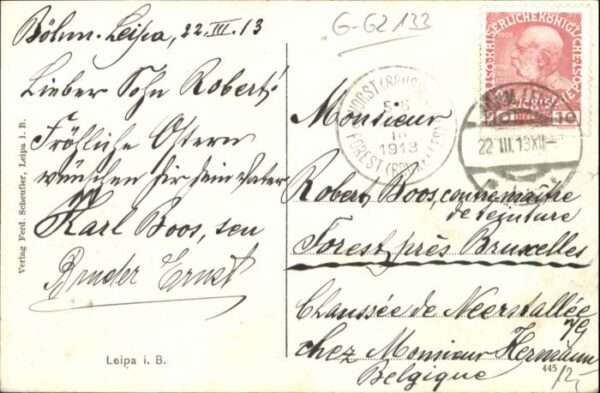 Böhm. Leipa, 22.III.13
Lieber Sohn Robert!
Fröhliche Ostern
wünschen dir dein Vater
Karl Boos, sen
Bruder Ernst
Verlag Ferd. Scheufler, Leipa i. B.
Leipa i. B.
G-GZ 133
FOREST
1913
22 III.13 XII-
10
Monsieur
Robert Boos, contremaître
de teinture
Forest près Bruxelles
Chaussée de Neerstallée
chez Monsieur Hermann
Belgique
445
12,-